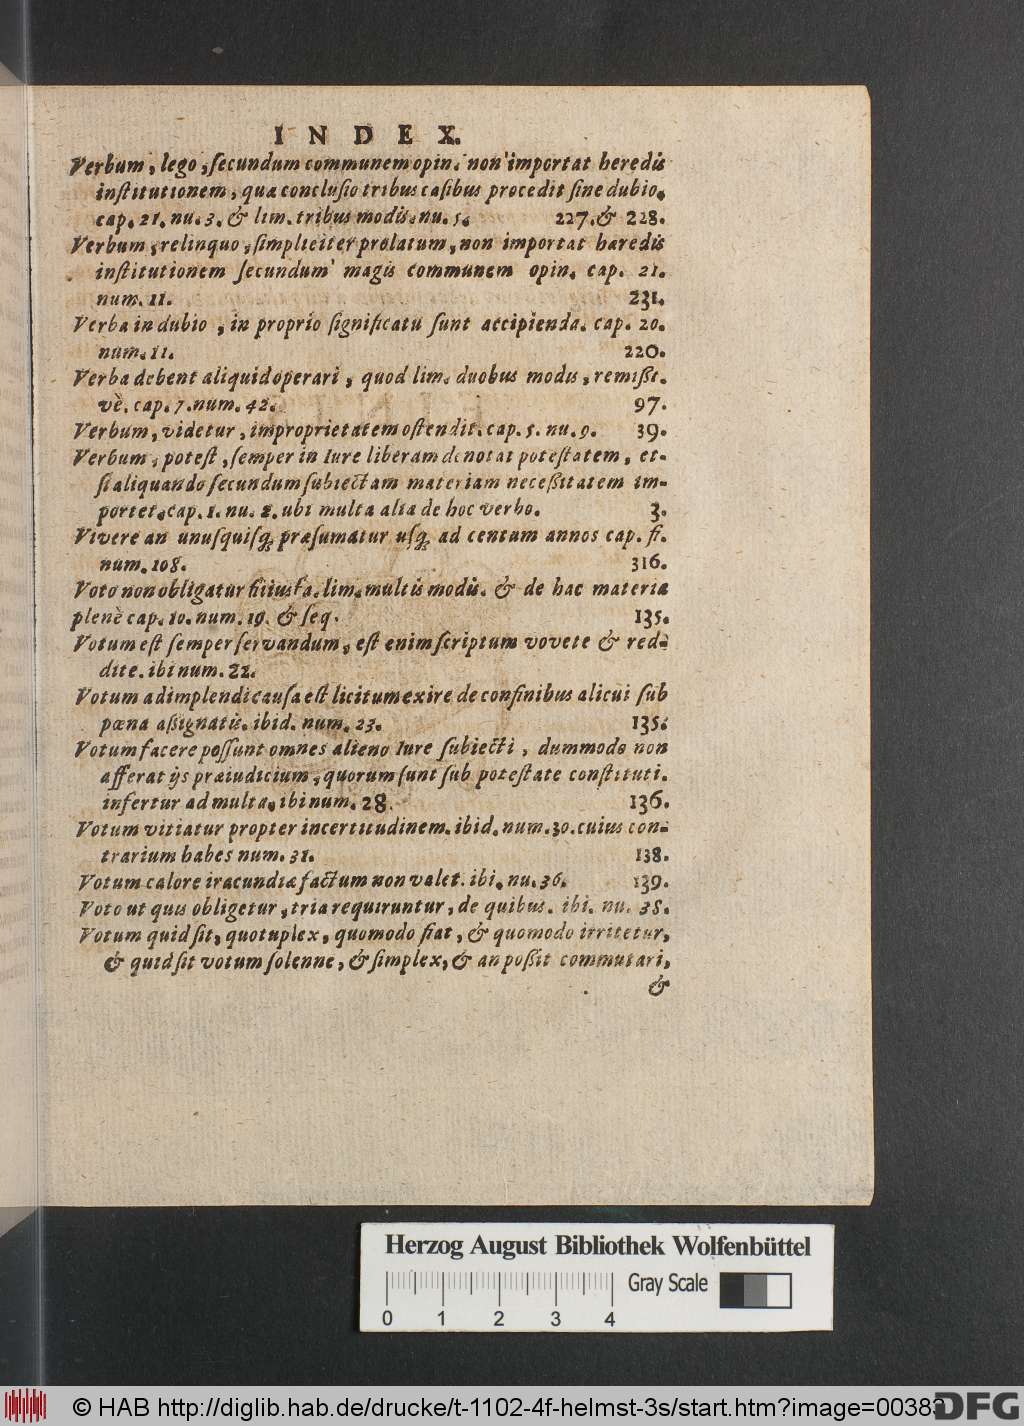 INDEX.
Verbum, lego, ſecundum communem opin. non importat heredis
inſtitutionem, quæ concluſio tribus caſibus procedit ſine dubio.
cap. 21. nu. 3. & lim. tribus modis. nu. 5. 227. & 228.
Verbum, relinquo, ſimpliciter prolatum, non importat hæredis
inſtitutionem ſecundum magis communem opin. cap. 21.
num. 11. 231.
Verba in dubio, in proprio ſignificatu ſunt accipienda. cap. 20.
num. 11. 220.
Verba debent aliquid operari, quod lim. duobus modis, remißi-
vè. cap. 7. num. 42. 97.
Verbum, videtur, improprietatem oſtendit. cap. 5. nu. 9. 39.
Verbum, poteſt, ſemper in Iure liberam denotat poteſtatem, et-
ſi aliquando ſecundum ſubiectam materiam neceßitatem im-
portet. cap. 1. nu. 2. ubi multa alia de hoc verbo. 3.
Vivere an unuſquiſq; præſumatur uſq; ad centum annos cap. fi.
num. 108. 316.
Voto non obligatur filiusfa. lim. multis modis. & de hac materia
plenè cap. 10. num. 19. & ſeq. 135.
Votum eſt ſemper ſervandum, eſt enim ſcriptum vovete & red-
dite. ibi num. 22.
Votum adimplendi cauſa eſt licitum exire de confinibus alicui ſub
pœna aßignatis. ibid. num. 23. 135.
Votum facere poſſunt omnes alieno Iure ſubiecti, dummodo non
afferat ijs præiudicium, quorum ſunt ſub poteſtate conſtituti.
infertur ad multa. ibi num. 28. 136.
Votum vitiatur propter incertitudinem. ibid. num. 30. cuius con-
trarium habes num. 31. 138.
Votum calore iracundiæ factum non valet. ibi. nu. 36. 139.
Voto ut quis obligetur, tria requiruntur, de quibus. ibi. nu. 38.
Votum quid ſit, quotuplex, quomodo fiat, & quomodo irritetur,
& quid ſit votum ſolenne, & ſimplex, & an poßit commutari,
&
Herzog August Bibliothek Wolfenbüttel
Gray Scale
0 1 2 3 4
© HAB http://diglib.hab.de/drucke/t-1102-4f-helmst-3s/start.htm?image=00383
DFG